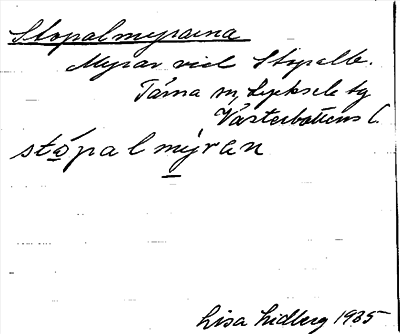 Stopalmyrarna
Myrar vid Stopalb.
Tärna sn, Lycksele tg
Västerbottens l.
stò̲pal mỳ̲ran
Lisa Lidberg 1935